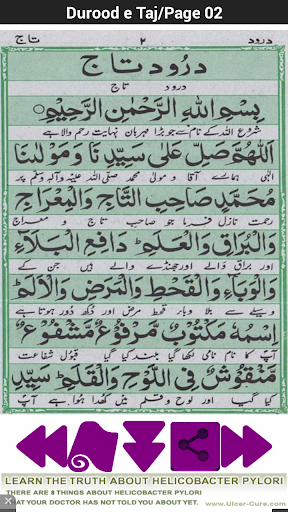 Durood e Taj/Page 02
تاج ٢ درود
درود تاج
درود تاج
بِسْمِ اللّٰهِ الرَّحْمٰنِ الرَّحِيْمِ
شروع اللہ کے نام سے جو بڑا مہربان نہایت رحم والا ہے
اَللّٰهُمَّ صَلِّ عَلٰى سَيِّدِنَا وَمَوْلٰنَا
الٰہی ہمارے آقا و مولیٰ محمد صلی اللہ علیہ وآلہ وسلم پر
مُحَمَّدٍ صَاحِبِ التَّاجِ وَالْمِعْرَاجِ
رحمت نازل فرما جو صاحب تاج و معراج
وَالْبُرَاقِ وَالْعَلَمِ دَافِعِ الْبَلَاءِ
اور براق والے اور جھنڈے والے ہیں جن کے
وَالْوَبَاءِ وَالْقَحْطِ وَالْمَرَضِ وَالْاَلَمِ
وسیلے سے بلا وبا قحط مرض اور دکھ دور ہوتا ہے
اِسْمُهٗ مَكْتُوْبٌ مَّرْفُوْعٌ مَّشْفُوْعٌ
آپ کا نام نامی لکھا گیا بلند کیا گیا قبول شفاعت
مَّنْقُوْشٌ فِى اللَّوْحِ وَالْقَلَمِ سَيِّدِ
کیا گیا اور لوح و قلم میں کھدا ہوا ہے آپ
LEARN THE TRUTH ABOUT HELICOBACTER PYLORI
THERE ARE 8 THINGS ABOUT HELICOBACTER PYLORI
THAT YOUR DOCTOR HAS NOT TOLD YOU ABOUT YET. www.Ulcer-Cure.com